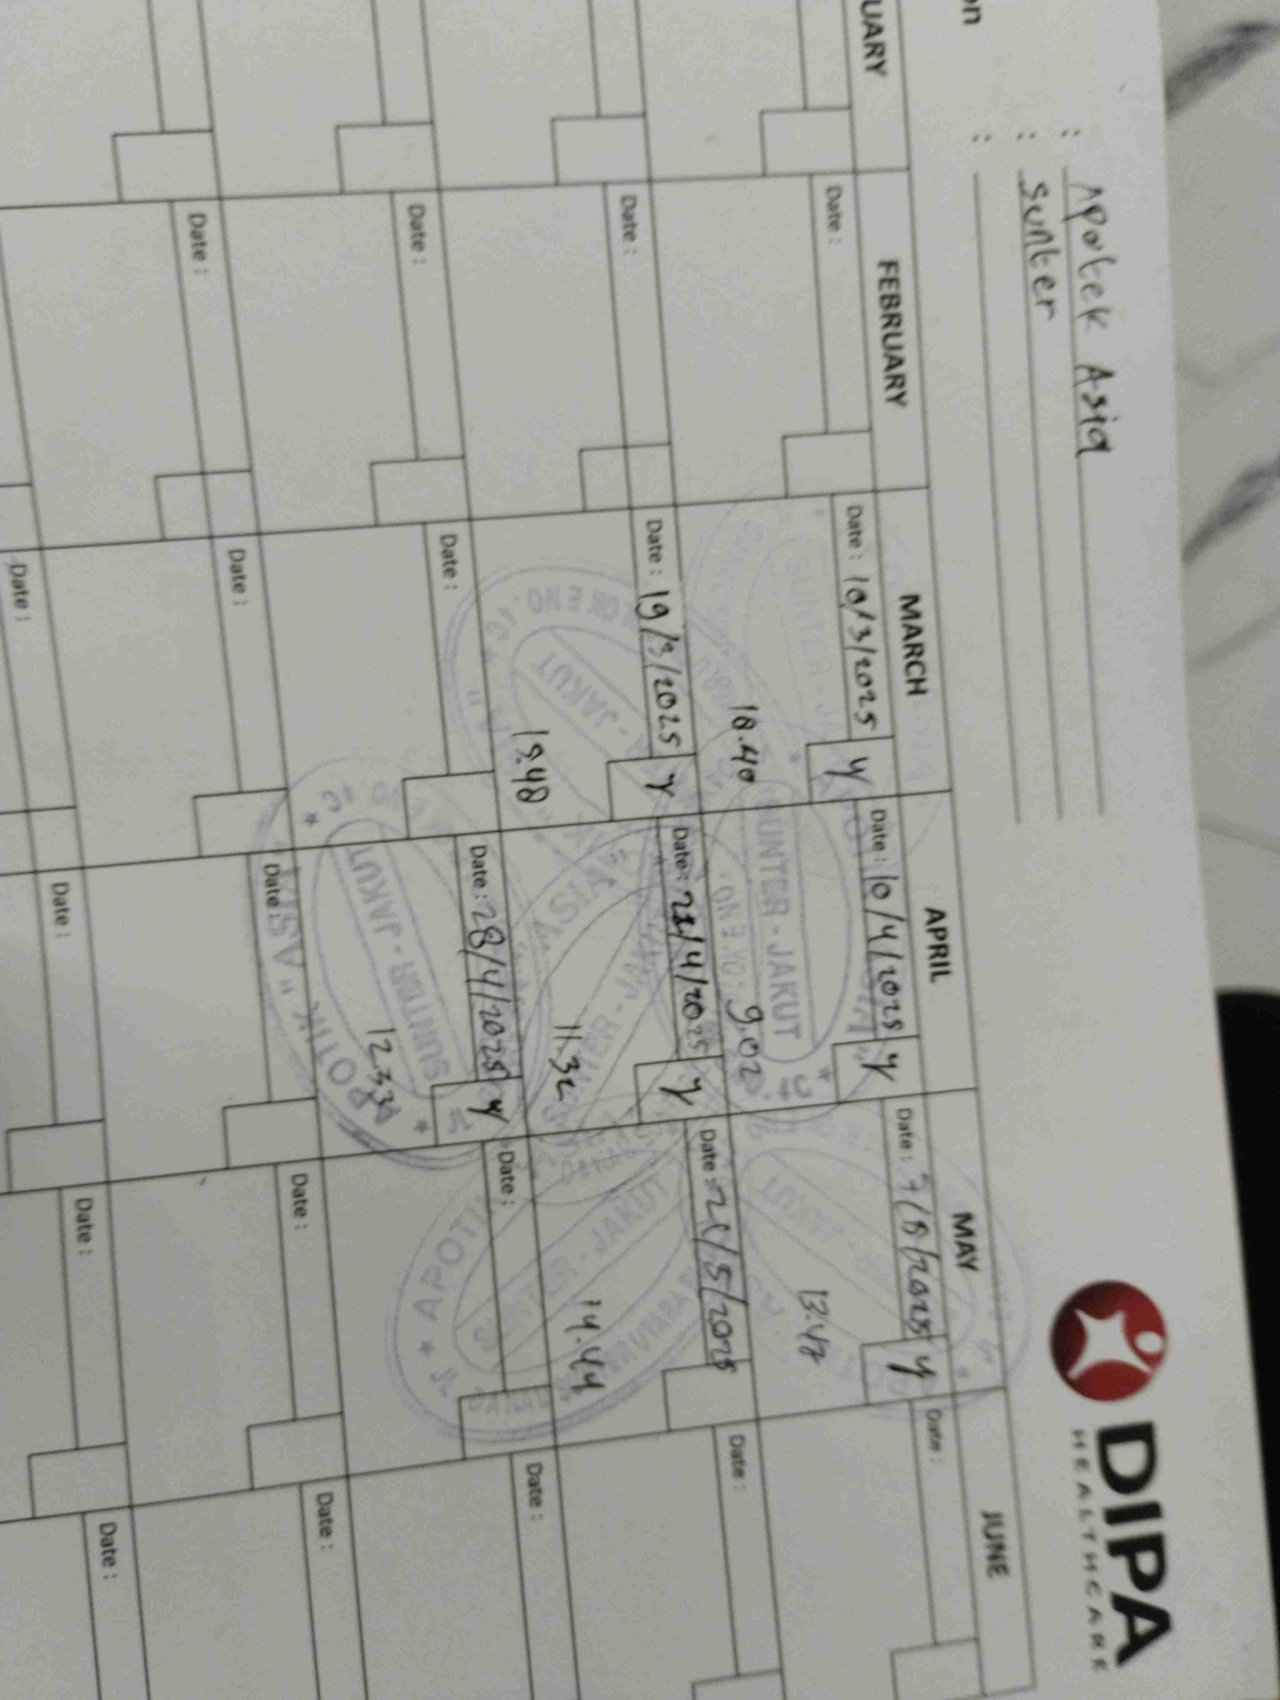 on
: Apotek Asia
: Sunter
:
DIPA
HEALTHCARE
UARY
FEBRUARY
MARCH
APRIL
MAY
JUNE
Date :
Date : 10/3/2025 Y
Date : 10/4/2025 Y
Date : 7/5/2025 Y
Date :
18.40
9.02
13.48
SUNTER - JAKUT
Date :
Date : 19/3/2025 Y
Date : 21/4/2025 Y
Date : 21/5/2025
Date :
19.48
11.32
14.44
Date :
Date :
Date : 28/4/2025 Y
Date :
Date :
12.33
SUNTER - JAKUT
APOTIK " ASIA
Date :
Date :
Date :
Date :
Date :
Date :
Date :
Date :
Date :